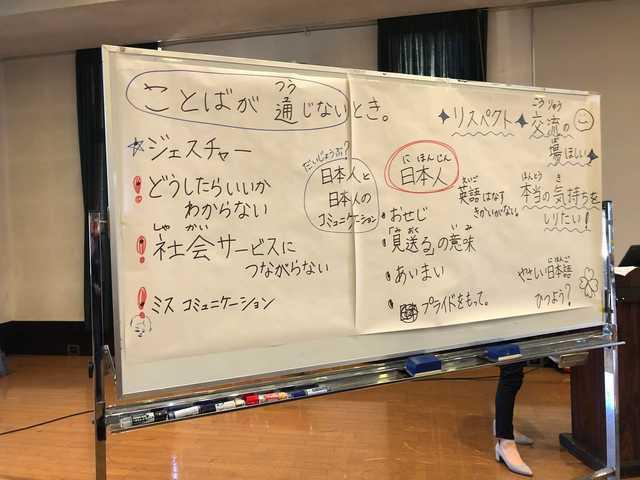 ことばが通じないとき。
つう
☆ジェスチャー
！どうしたらいいか
わからない
しゃかい
！社会サービスに
つながらない
！ミスコミュニケーション
だいじょうぶ？
日本人と
日本人の
コミュニケーション
にほんじん
日本人
・おせじ
みおく いみ
・「見送る」の意味
・あいまい
・プライドをもって。
えいご
英語はなす
きかいがない。
✦リスペクト✦
こうりゅう
交流の
ば
場ほしい✦
ほんとう き
本当の気持ちを
しりたい！
にほんご
やさしい日本語
ひつよう？